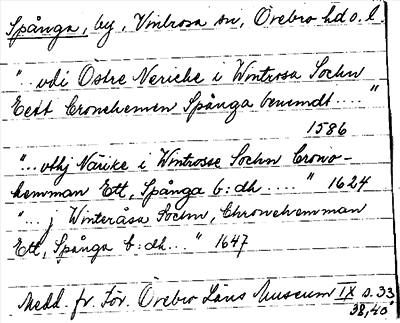 Spånga, by, Vintrosa sn, Örebro hd o. l.
"... vdi Östre Nericke i Wintrosa Sochn
Eett Cronehemen Spånga benemdt ...."
1586
"... vthj Närike i Wintrosse Sochn Crono-
hemman Ett, Spånga b:dh ....." 1624
"... j Winteråsa Sochn, Chronehemman
Ett, Spånga b:dh..." 1647
Medd. fr. För. Örebro Läns Museum IX s. 33
38, 40